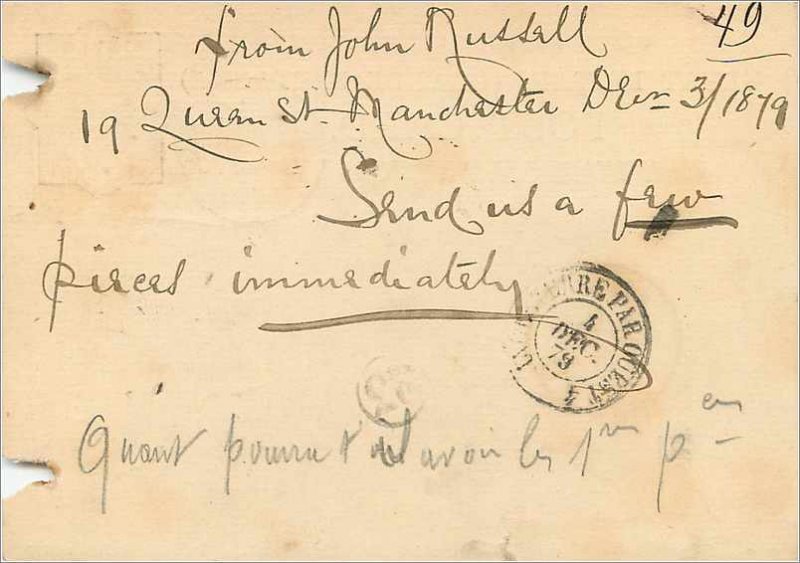 49
from John Russell
19 Queen St Manchester Decr 3/1879
Send us a few
pieces immediately
ANGLETERRE PAR OUEST
4
DEC.
79
Quant pourra t il avoir les 1res pces